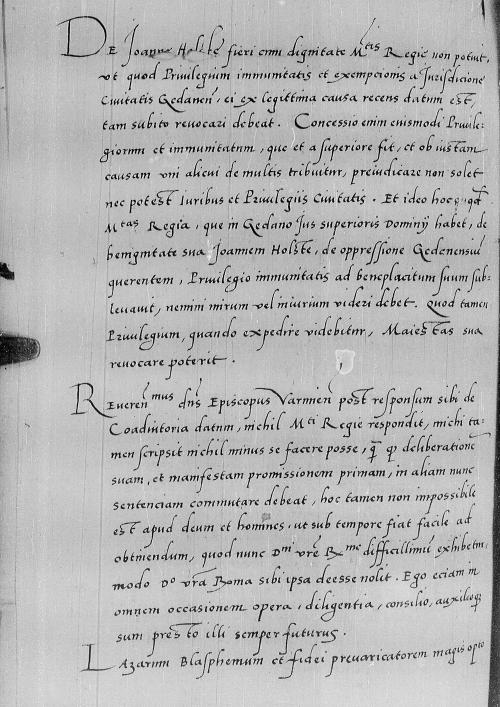 DE Joanne Holste fieri cum dignitate M^tis Regie non potuit,
vt quod Priuilegium immunitatis et exempcionis a Jurisdicione
Ciuitatis Gedanen̄, ei ex legittima causa recens datum est,
tam subito reuocari debeat. Concessio enim eiusmodi Priuile-
giorum et immunitatum, que et a superiore fit, et ob iustam
causam vni alicui de multis tribuitur, preiudicare non solet
nec potest Iuribus et Priuilegiis Ciuitatis. Et ideo hoc
M^tas Regia, que in Gedano Jus superioris Dominij habet, de
benignitate sua Joannem Holste, de oppressione Gedenensiū
querentem, Priuilegio immunitatis ad beneplacitum suum sub-
leuauit, nemini mirum vel iniurium videri debet. Quod tamen
Priuilegium, quando expedire videbitur, Maiestas sua
reuocare poterit.
REueren^mus dn̄s Episcopus Varmien̄ post responsum sibi de
Coadiutoria datum, nichil M^ti Regie respondit, michi ta-
men scripsit nichil minus se facere posse, q̄ qp deliberationē
suam, et manifestam promissionem primam, in aliam nunc
sentenciam commutare debeat, hoc tamen non impossibile
est apud deum et homines, ut sub tempore fiat facile ad
obtinendum, quod nunc D^ni vrē R^me difficillimū exhibetur,
modo D^o vr̄a Roma sibi ipsa deesse nolit. Ego eciam in
omnem occasionem opera, diligentia, consilio, auxilioq̄
sum presto illi semper futurus.
LAzarum Blasphemum et fidei preuaricatorem magis opto